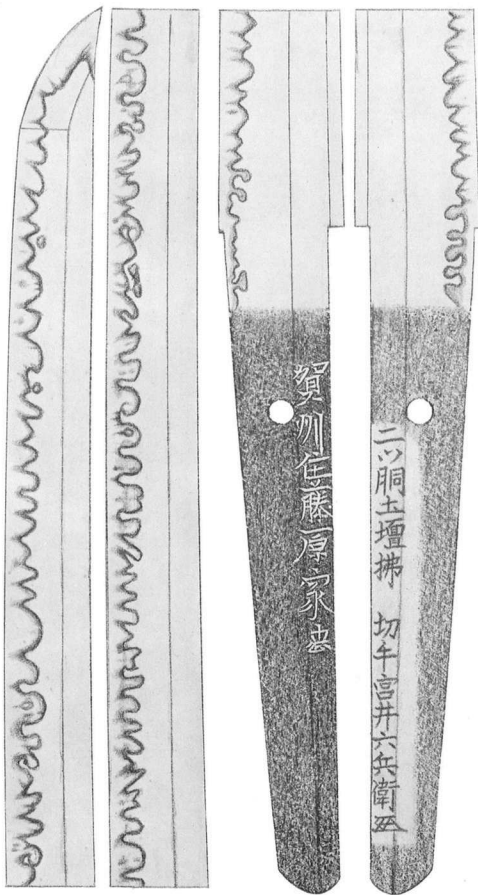 賀州住藤原家忠
二ツ胴土壇拂 切手宮井六兵衛